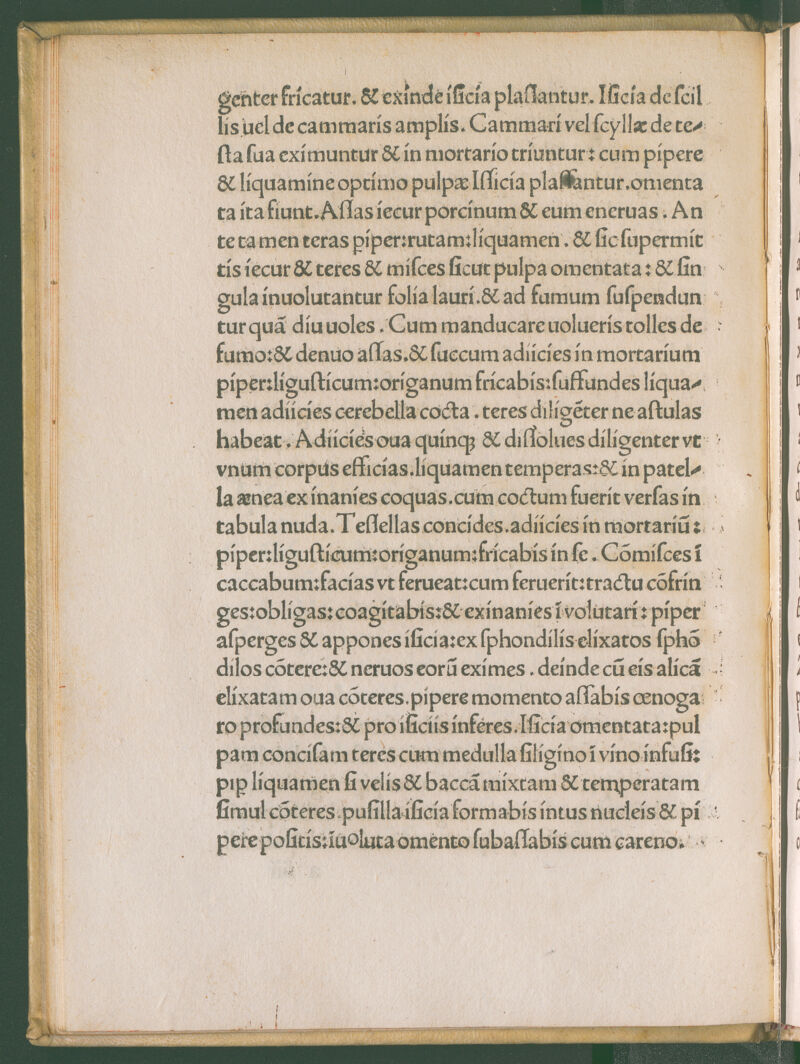 genter fricatur. & exinde iſicia plaſſantur. Iſicia de ſcil
lis uel de cammaris amplis. Cammari vel ſcyllæ de te⸗
ſta ſua eximuntur & in mortario triuntur: cum pipere
& liquamine optimo pulpæ Iſſicia plaſſantur. omenta
ta ita fiunt. Aſſas iecur porcinum & eum eneruas. An
te tamen teras piper: rutam: liquamen. & ſic ſupermit
tis iecur & teres & miſces ſicut pulpa omentata: & ſin
gula inuolutantur folia lauri. & ad fumum ſuſpendun
tur quã diu uoles. Cum manducare uolueris tolles de
fumo: & denuo aſſas. & ſuccum adiicies in mortarium
piper: liguſticum: origanum fricabis: ſuffundes liqua⸗
men adiicies cerebella cocta. teres diligẽter ne aſtulas
habeat. Adiicies oua quinqꝫ & diſſolues diligenter vt
vnum corpus efficias. liquamen temperas: & in patel⸗
la ænea exinanies coquas. cum coctum fuerit verſas in
tabula nuda. Teſſellas concides. adiicies in mortariũ:
piper: liguſticum: origanum: fricabis in ſe. Cõmiſces ĩ
caccabum: facias vt ferueat: cum feruerit: tractu cõfrin
ges: obligas: coagitabis: & exinanies ĩ volutari: piper
aſperges & appones iſicia: ex ſphondilis elixatos ſphõ
dilos cõtere: & neruos eorũ eximes. deinde cũ eis alicã
elixatam oua cõteres. pipere momento aſſabis œnoga
ro profundes: & pro iſiciis inferes. Iſicia omentata: pul
pam conciſam teres cum medulla ſiligino ĩ vino infuſi:
pip liquamen ſi velis & baccã mixtam & temperatam
ſimul cõteres. puſilla iſicia formabis intus nucleis & pi
pere poſitis: ĩuoluta omento ſubaſſabis cum careno.